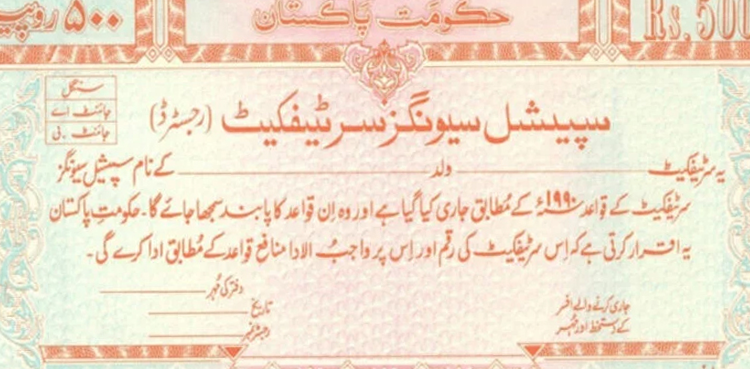 ۵۰۰ روپے
حکومت پاکستان
Rs. 500
سنگل
جائنٹ اے
جائنٹ ۔بی
سپیشل سیونگز سرٹیفکیٹ (رجسٹرڈ)
یہ سرٹیفکیٹ ولد کے نام سپیشل سیونگز
سرٹیفکیٹ کے قواعد ۱۹۹۰ء کے مُطابق جاری کیا گیا ہے اور وہ اِن قواعد کا پابند سمجھا جائے گا۔ حکومتِ پاکستان
یہ اقرار کرتی ہے کہ اِس سرٹیفکیٹ کی رقم اور اِس پر واجبُ الادا منافع قواعد کے مُطابق ادا کرے گی۔
دفتر کی مُہر
جاری کرنے والے افسر
تاریخ
کے دستخط اور مُہر
رجسٹر نمبر